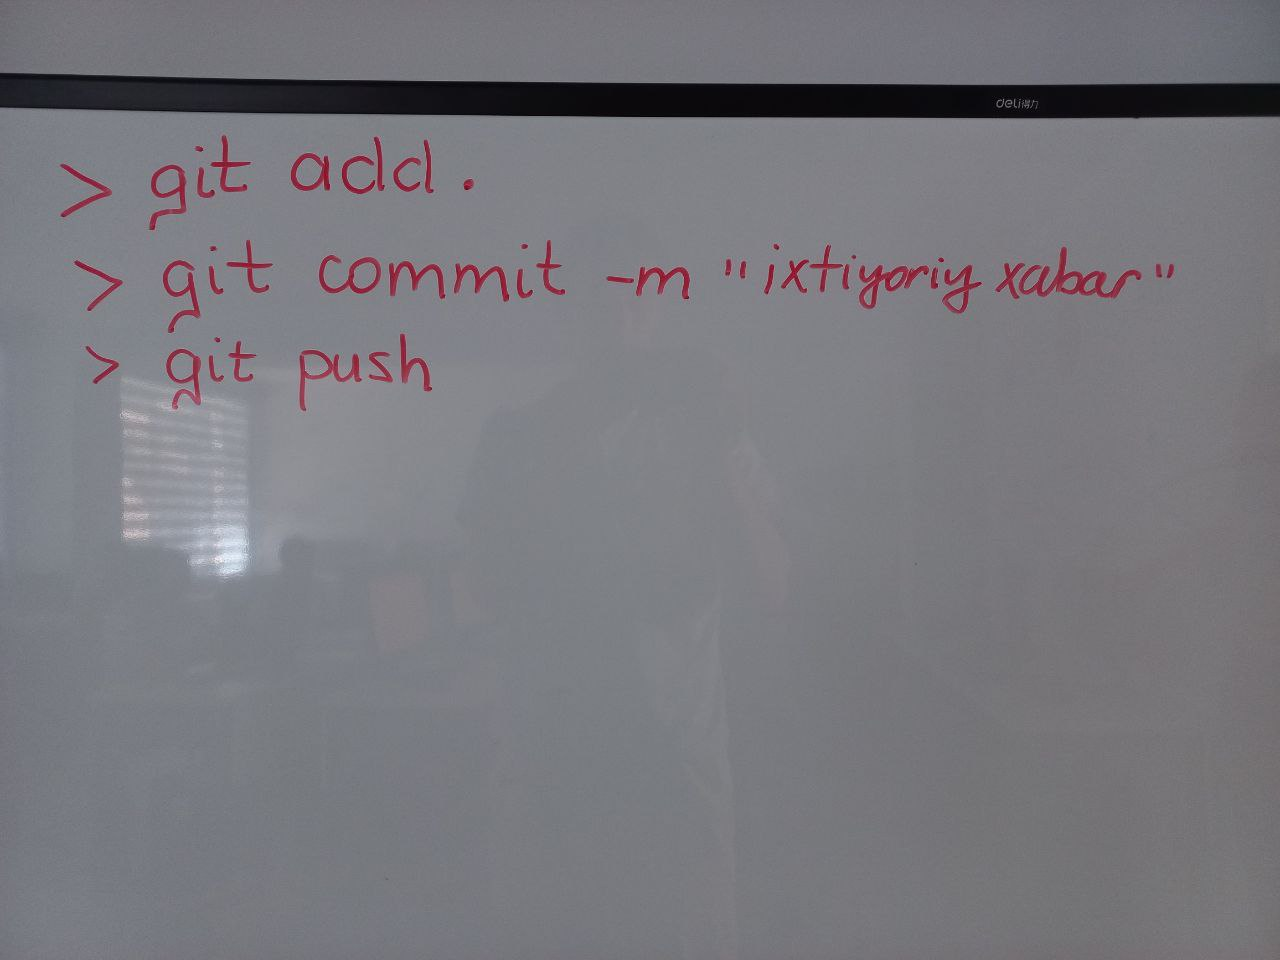 deli得力
> git add .
> git commit -m "ixtiyoriy xabar"
> git push